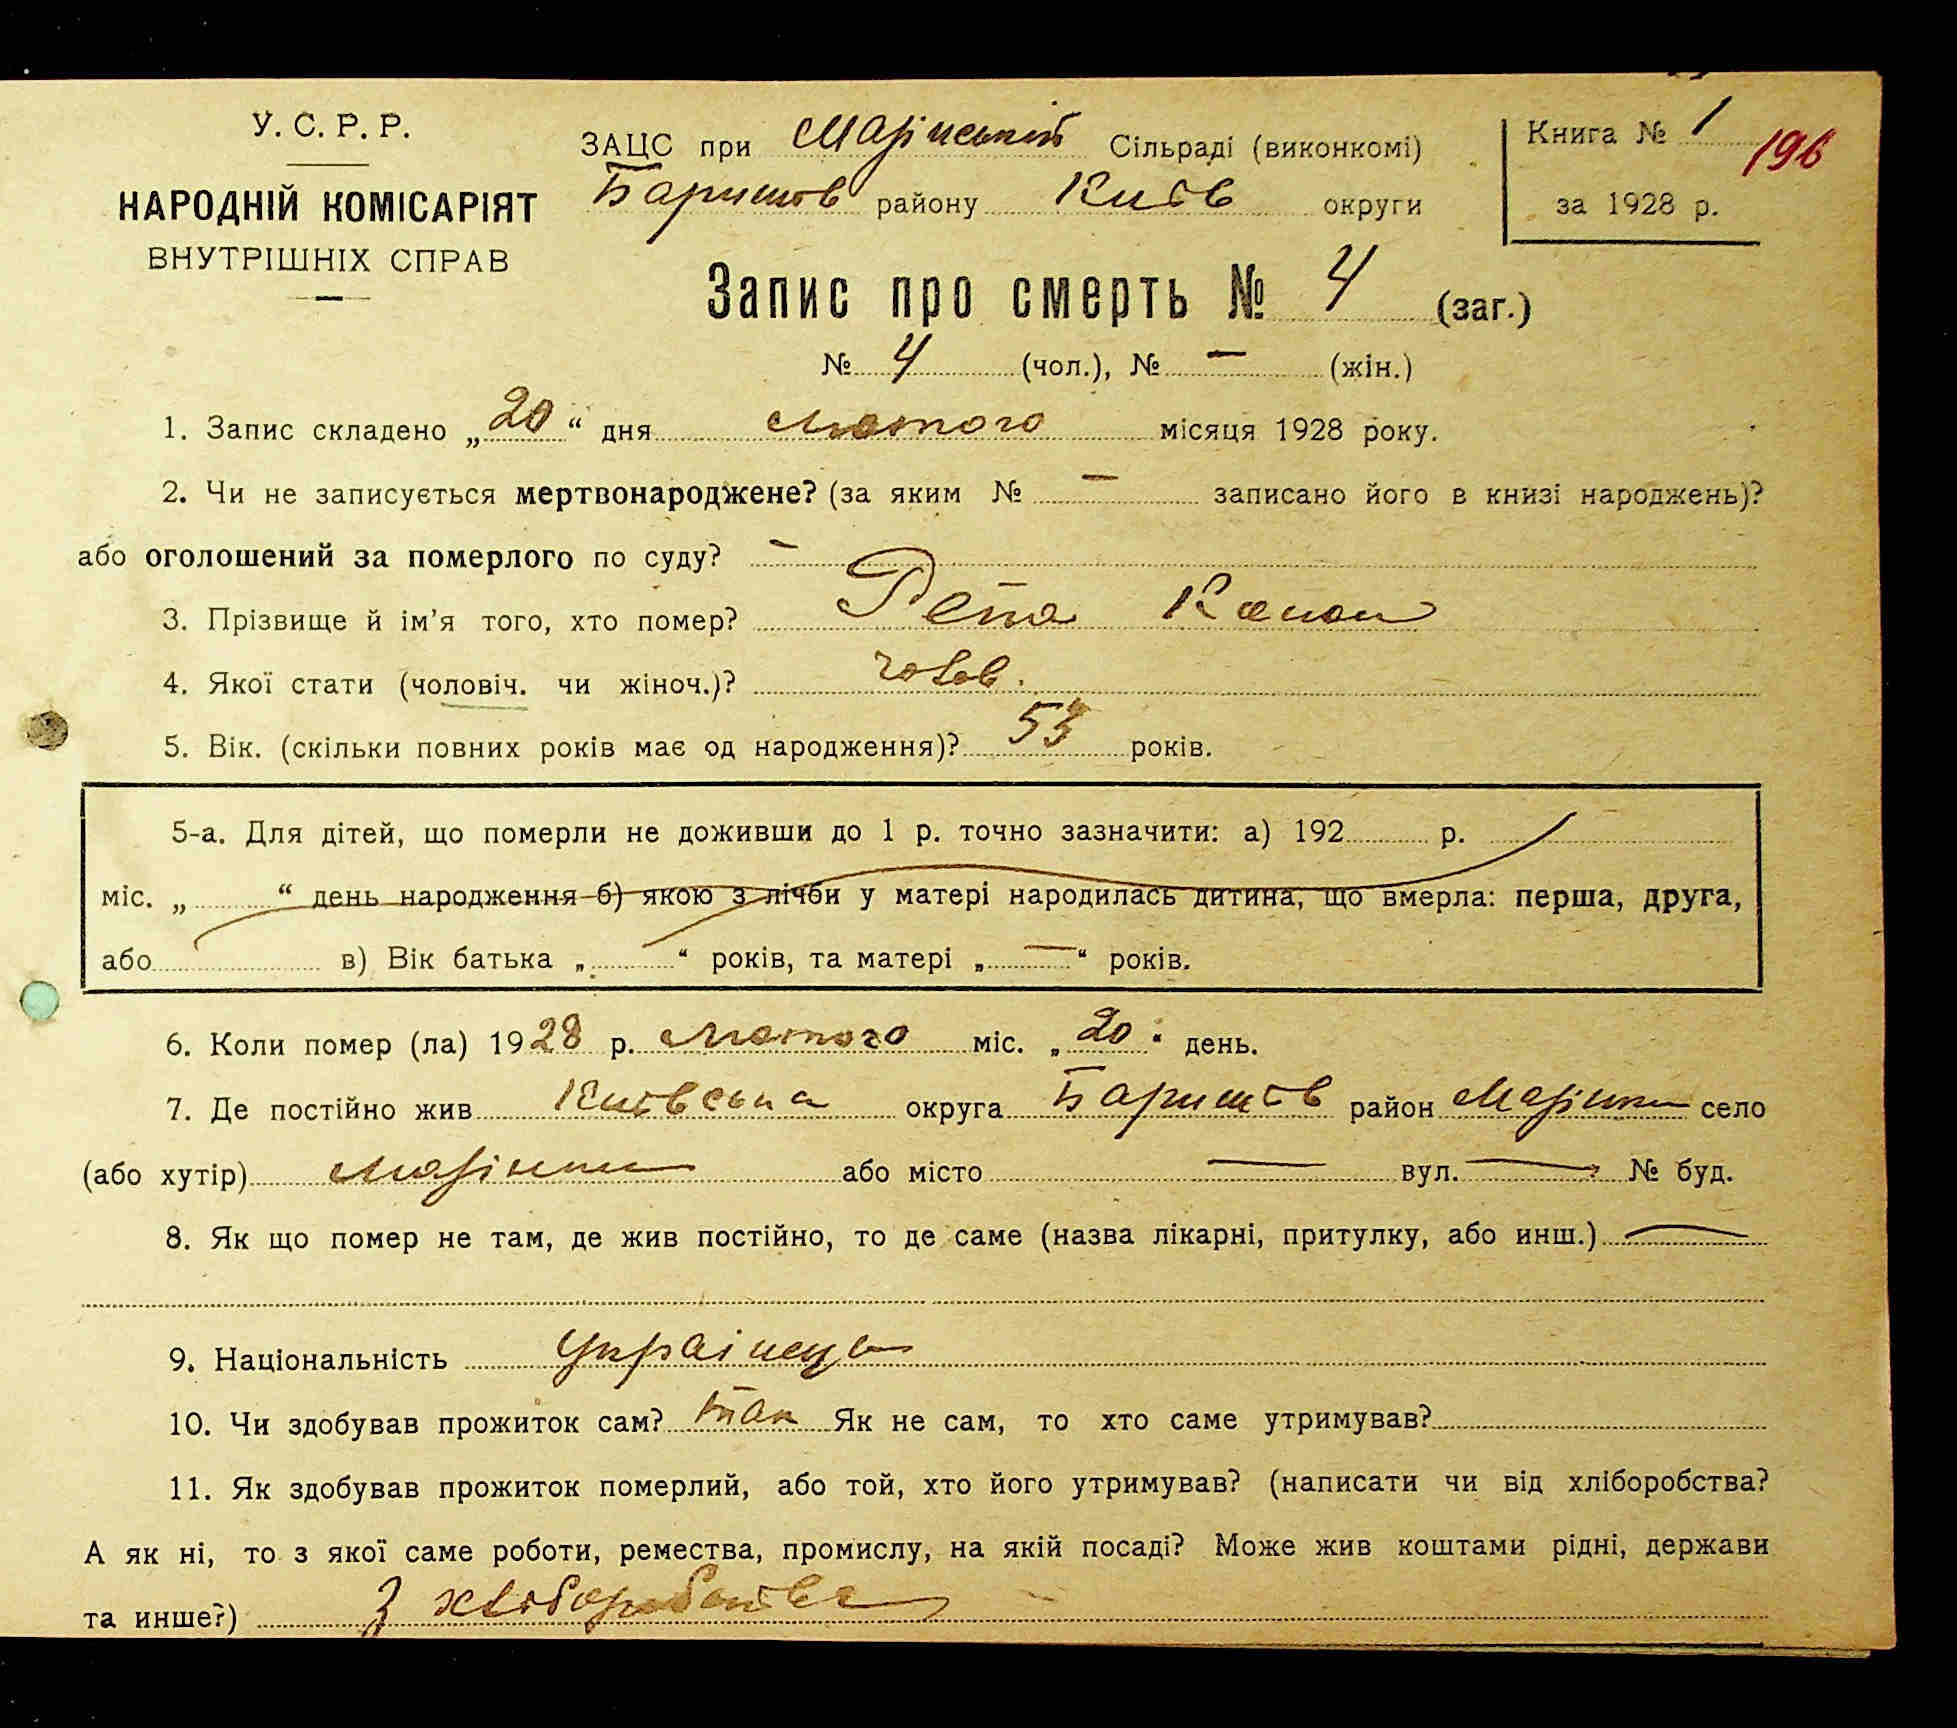 У. С. Р. Р.
НАРОДНІЙ КОМІСАРІЯТ
ВНУТРІШНІХ СПРАВ
ЗАЦС при Марінській Сільраді (виконкомі)
Баришів району Київ округи
Книга № 1
196
за 1928 р.
Запис про смерть № 4 (заг.)
№ 4 (чол.), № — (жін.)
1. Запис складено „20“ дня лютого місяця 1928 року.
2. Чи не записується мертвонароджене? (за яким № — записано його в книзі народжень)?
або оголошений за померлого по суду? —
3. Прізвище й ім’я того, хто помер? Репа Канон
4. Якої стати (чоловіч. чи жіноч.)? чолов.
5. Вік. (скільки повних років має од народження)? 53 років.
5-а. Для дітей, що померли не доживши до 1 р. точно зазначити: а) 192 р.
міс. „ “ день народження б) якою з лічби у матері народилась дитина, що вмерла: перша, друга,
або в) Вік батька „ “ років, та матері „—“ років.
6. Коли помер (ла) 1928 р. лютого міс. „20“ день.
7. Де постійно жив Київська округа Баришів район Марінка село
(або хутір) Марінка або місто — вул. — № буд.
8. Як що помер не там, де жив постійно, то де саме (назва лікарні, притулку, або инш.) —
9. Національність Українець
10. Чи здобував прожиток сам? так Як не сам, то хто саме утримував?
11. Як здобував прожиток померлий, або той, хто його утримував? (написати чи від хліборобства?
А як ні, то з якої саме роботи, ремества, промислу, на якій посаді? Може жив коштами рідні, держави
та инше?) З хліборобства